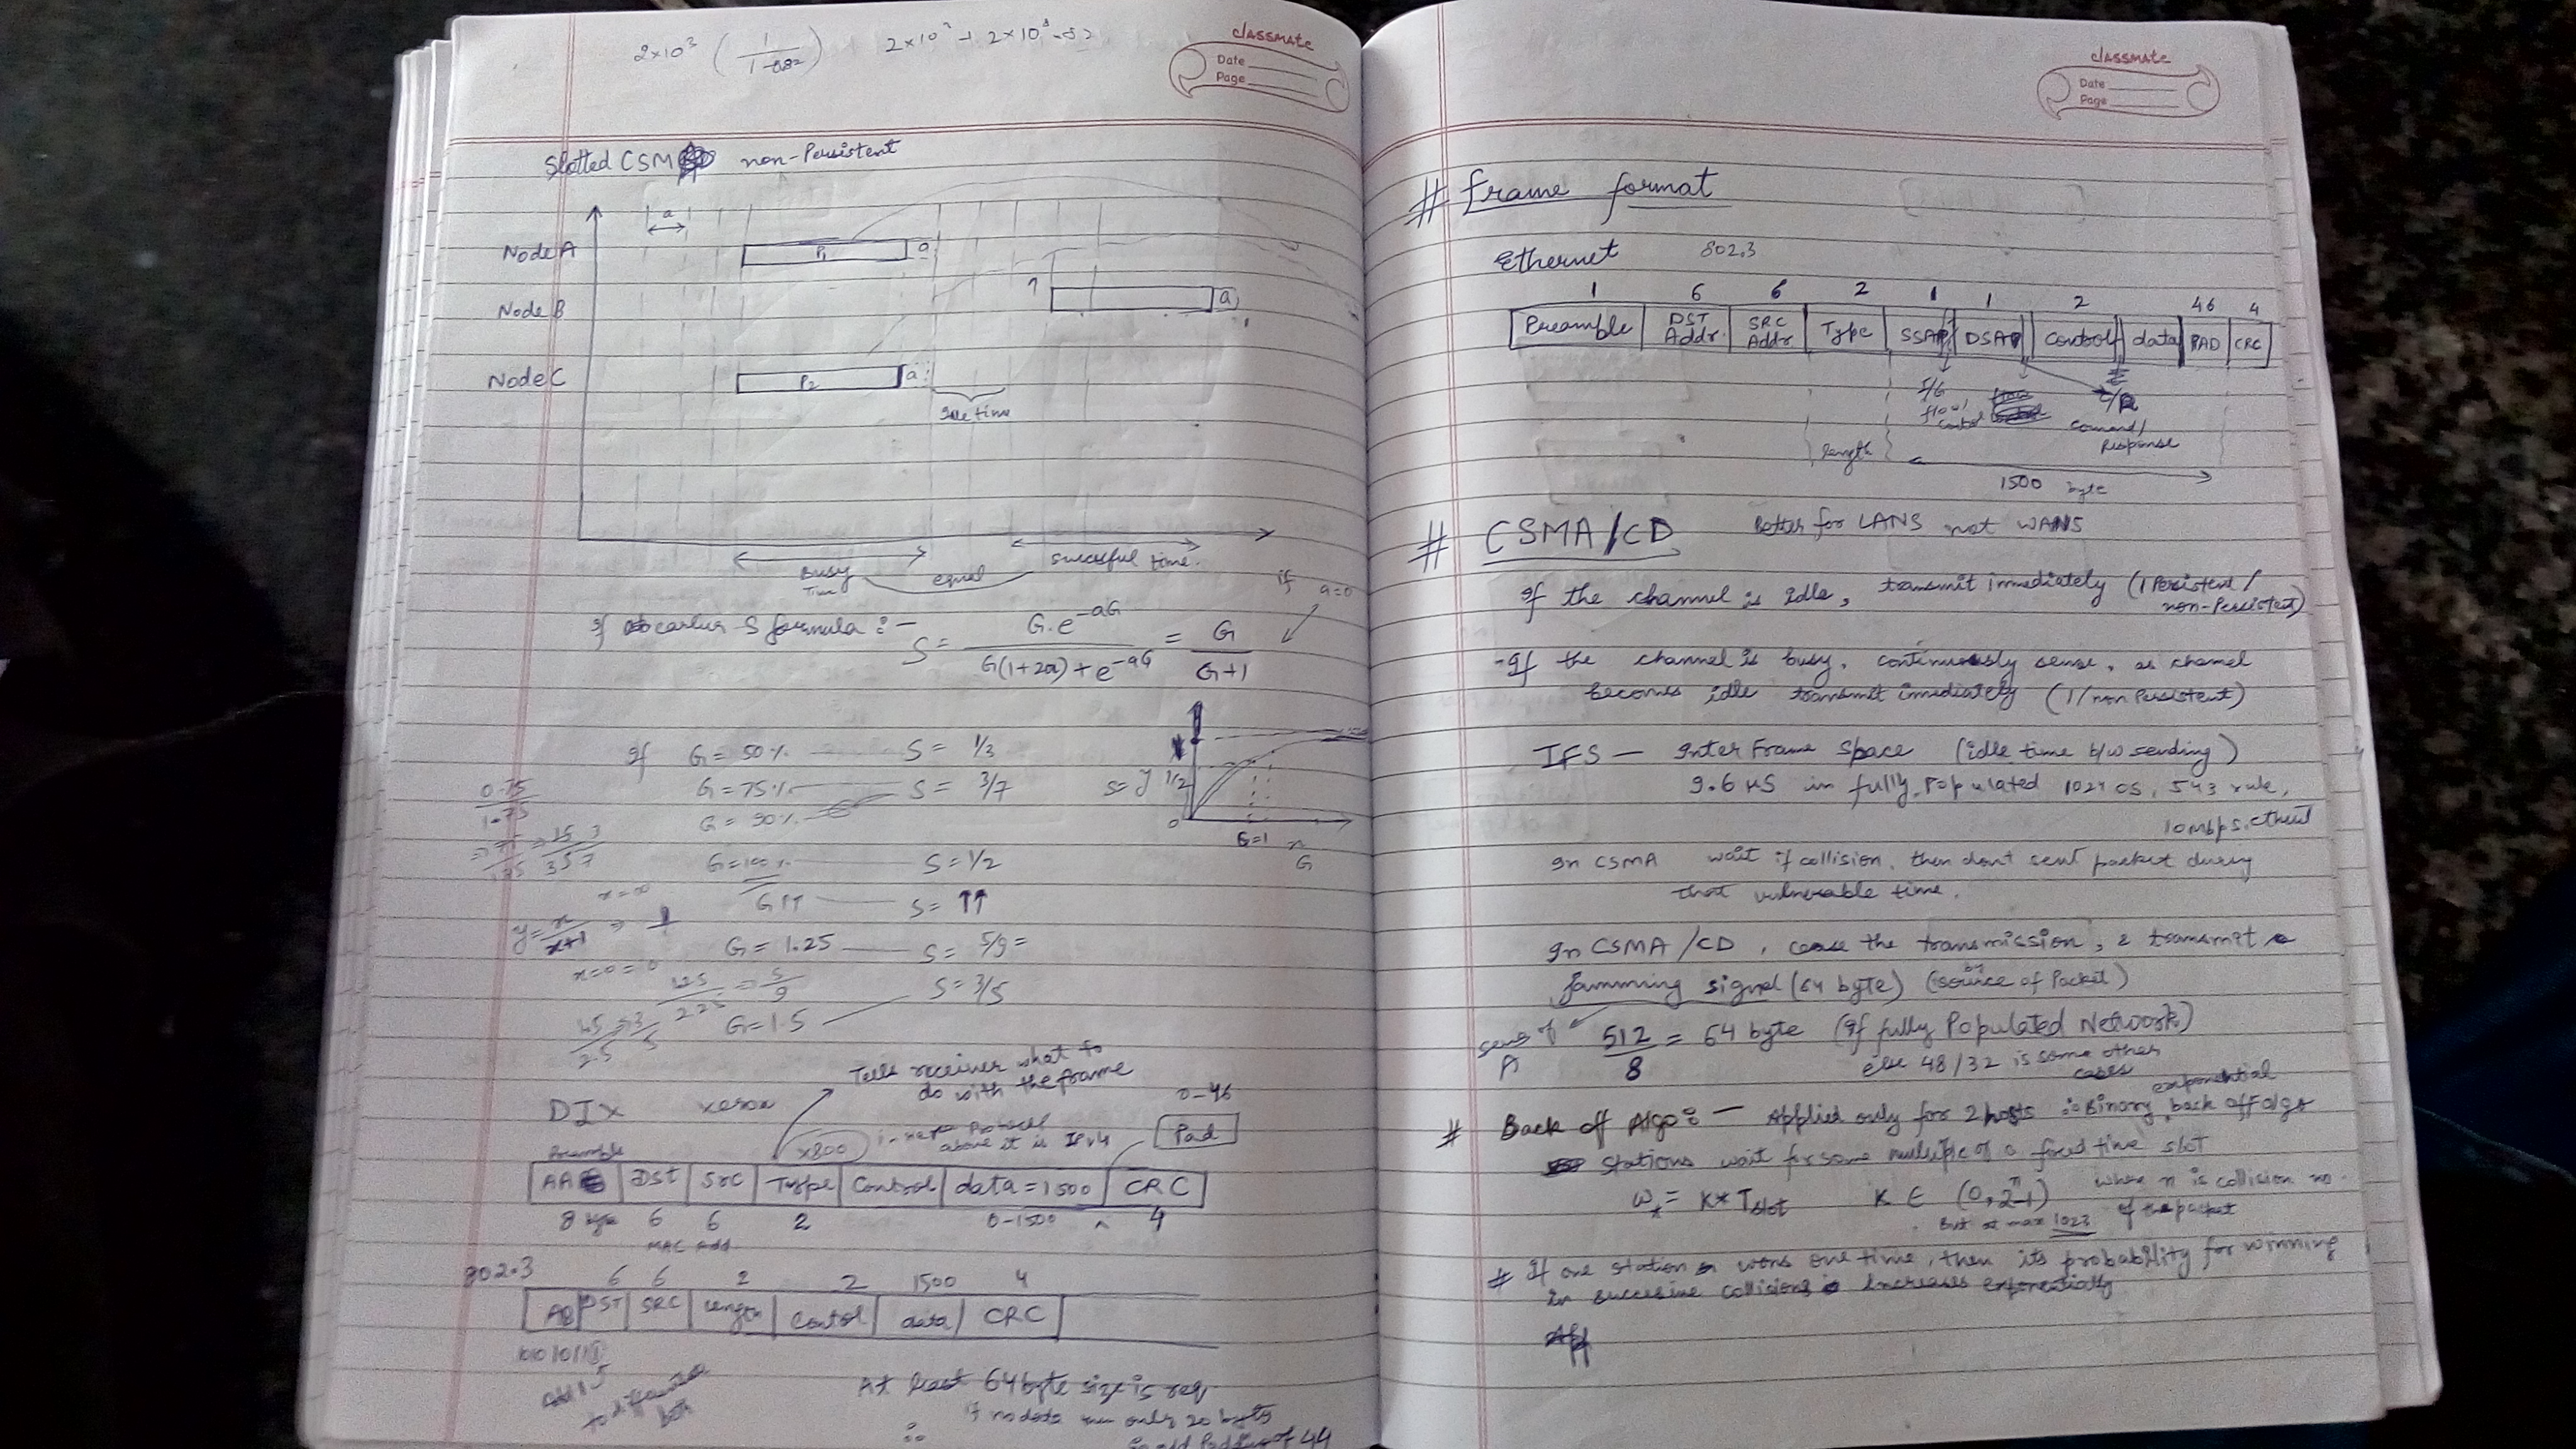 2×10³ ( 1 / 1-0.82 )
classmate
Date
Page
Slotted CSM non-Persistent
a
Node A P1 a
Node B a
Node C P2 a
Idle time
Busy Time equal succesful time.
if a=0
S formula :- S = G.e^-aG / G(1+2a)+e^-aG = G / G+1
If G = 50% S = 1/3
G = 75% S = 3/7
G = 90%
G = 100% S = 1/2
G↑↑ S = ↑↑
G = 1.25 S = 5/9 =
G = 1.5 S = 3/5
0.75 / 1.75
y = x / x+1 ⇒ 1
x=∞
x=0=0
1.25 / 2.25 ⇒ 5/9
S= y 1/2
0
G=1 x
G
Tells receiver what to
do with the frame
DIX xerox
0-46
Pad
x800
above it is IPv4
Preamble
AA DST Src Type Control data=1500 CRC
8 byte 6 6 2 0-1500 4
MAC Add
802.3 6 6 2 2 1500 4
DST SRC Length Contol data CRC
At least 64 byte size is req
if no data then only 20 bytes
∴ add Padding of 44
classmate
Date
Page
# frame format
Ethernet 802.3
1 6 6 2 1 1 2 46 4
Preamble DST Addr. SRC Addr Type SSAP DSAP Control data PAD CRC
I/G C/R
Comand/
Response
length
1500 byte
# CSMA/CD Better for LANS not WANS
If the channel is idle, transmit immediately (1 Persistent/
non-Persistent)
-If the channel is busy, continuously sense, as channel
becomes idle transmit imediately (1/non Persistent)
IFS — Inter Frame Space (idle time b/w sending)
9.6 μS in fully Populated 1024 CS, 543 rule,
10mbps ethernet
In CSMA wait if collision, then dont sent packet during
that vulnerable time.
In CSMA/CD, cease the transmission, & transmit a
Jamming signal (64 byte) (by source of Packet)
512 / 8 = 64 byte (If fully Populated Network)
else 48/32 is some other
cases
# Back off Algo:— Applied only for 2 hosts ∴ Binary exponential back off algo
stations wait for some multiple of a fixed time slot
w = K*Tslot K ∈ (0, 2ⁿ-1) where n is collision no.
But at max 1023 of the packet
# If one station wons one time, then its probability for winning
in succesive collisions Increases exponentially